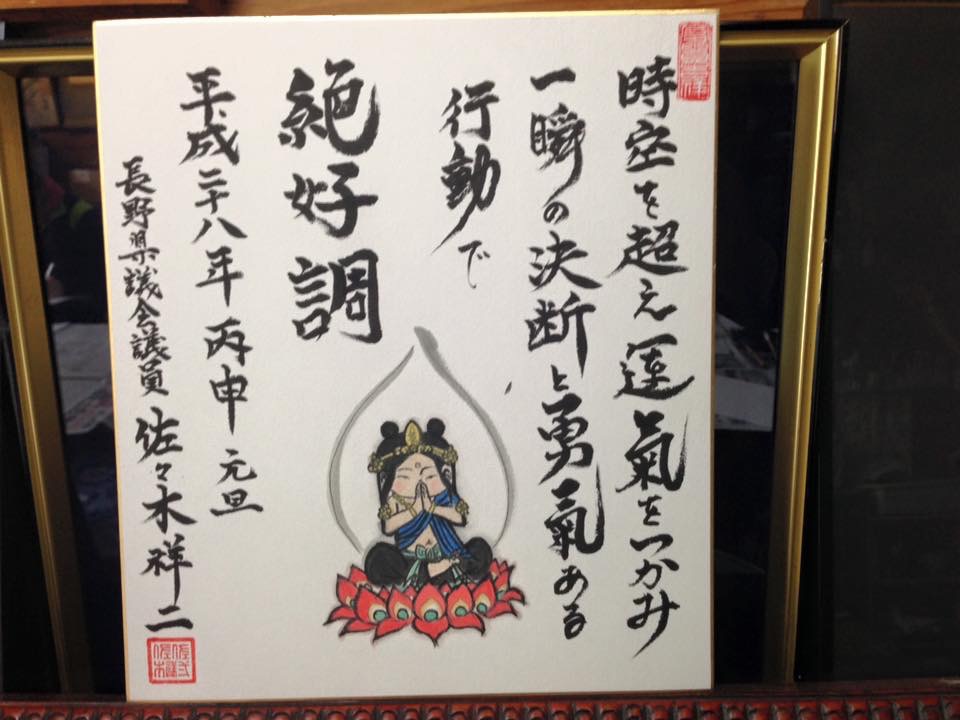 時空を超え運氣をつかみ
一瞬の決断と勇氣ある
行動で
絶好調
平成二十八年 丙申 元旦
長野県議会議員 佐々木祥二